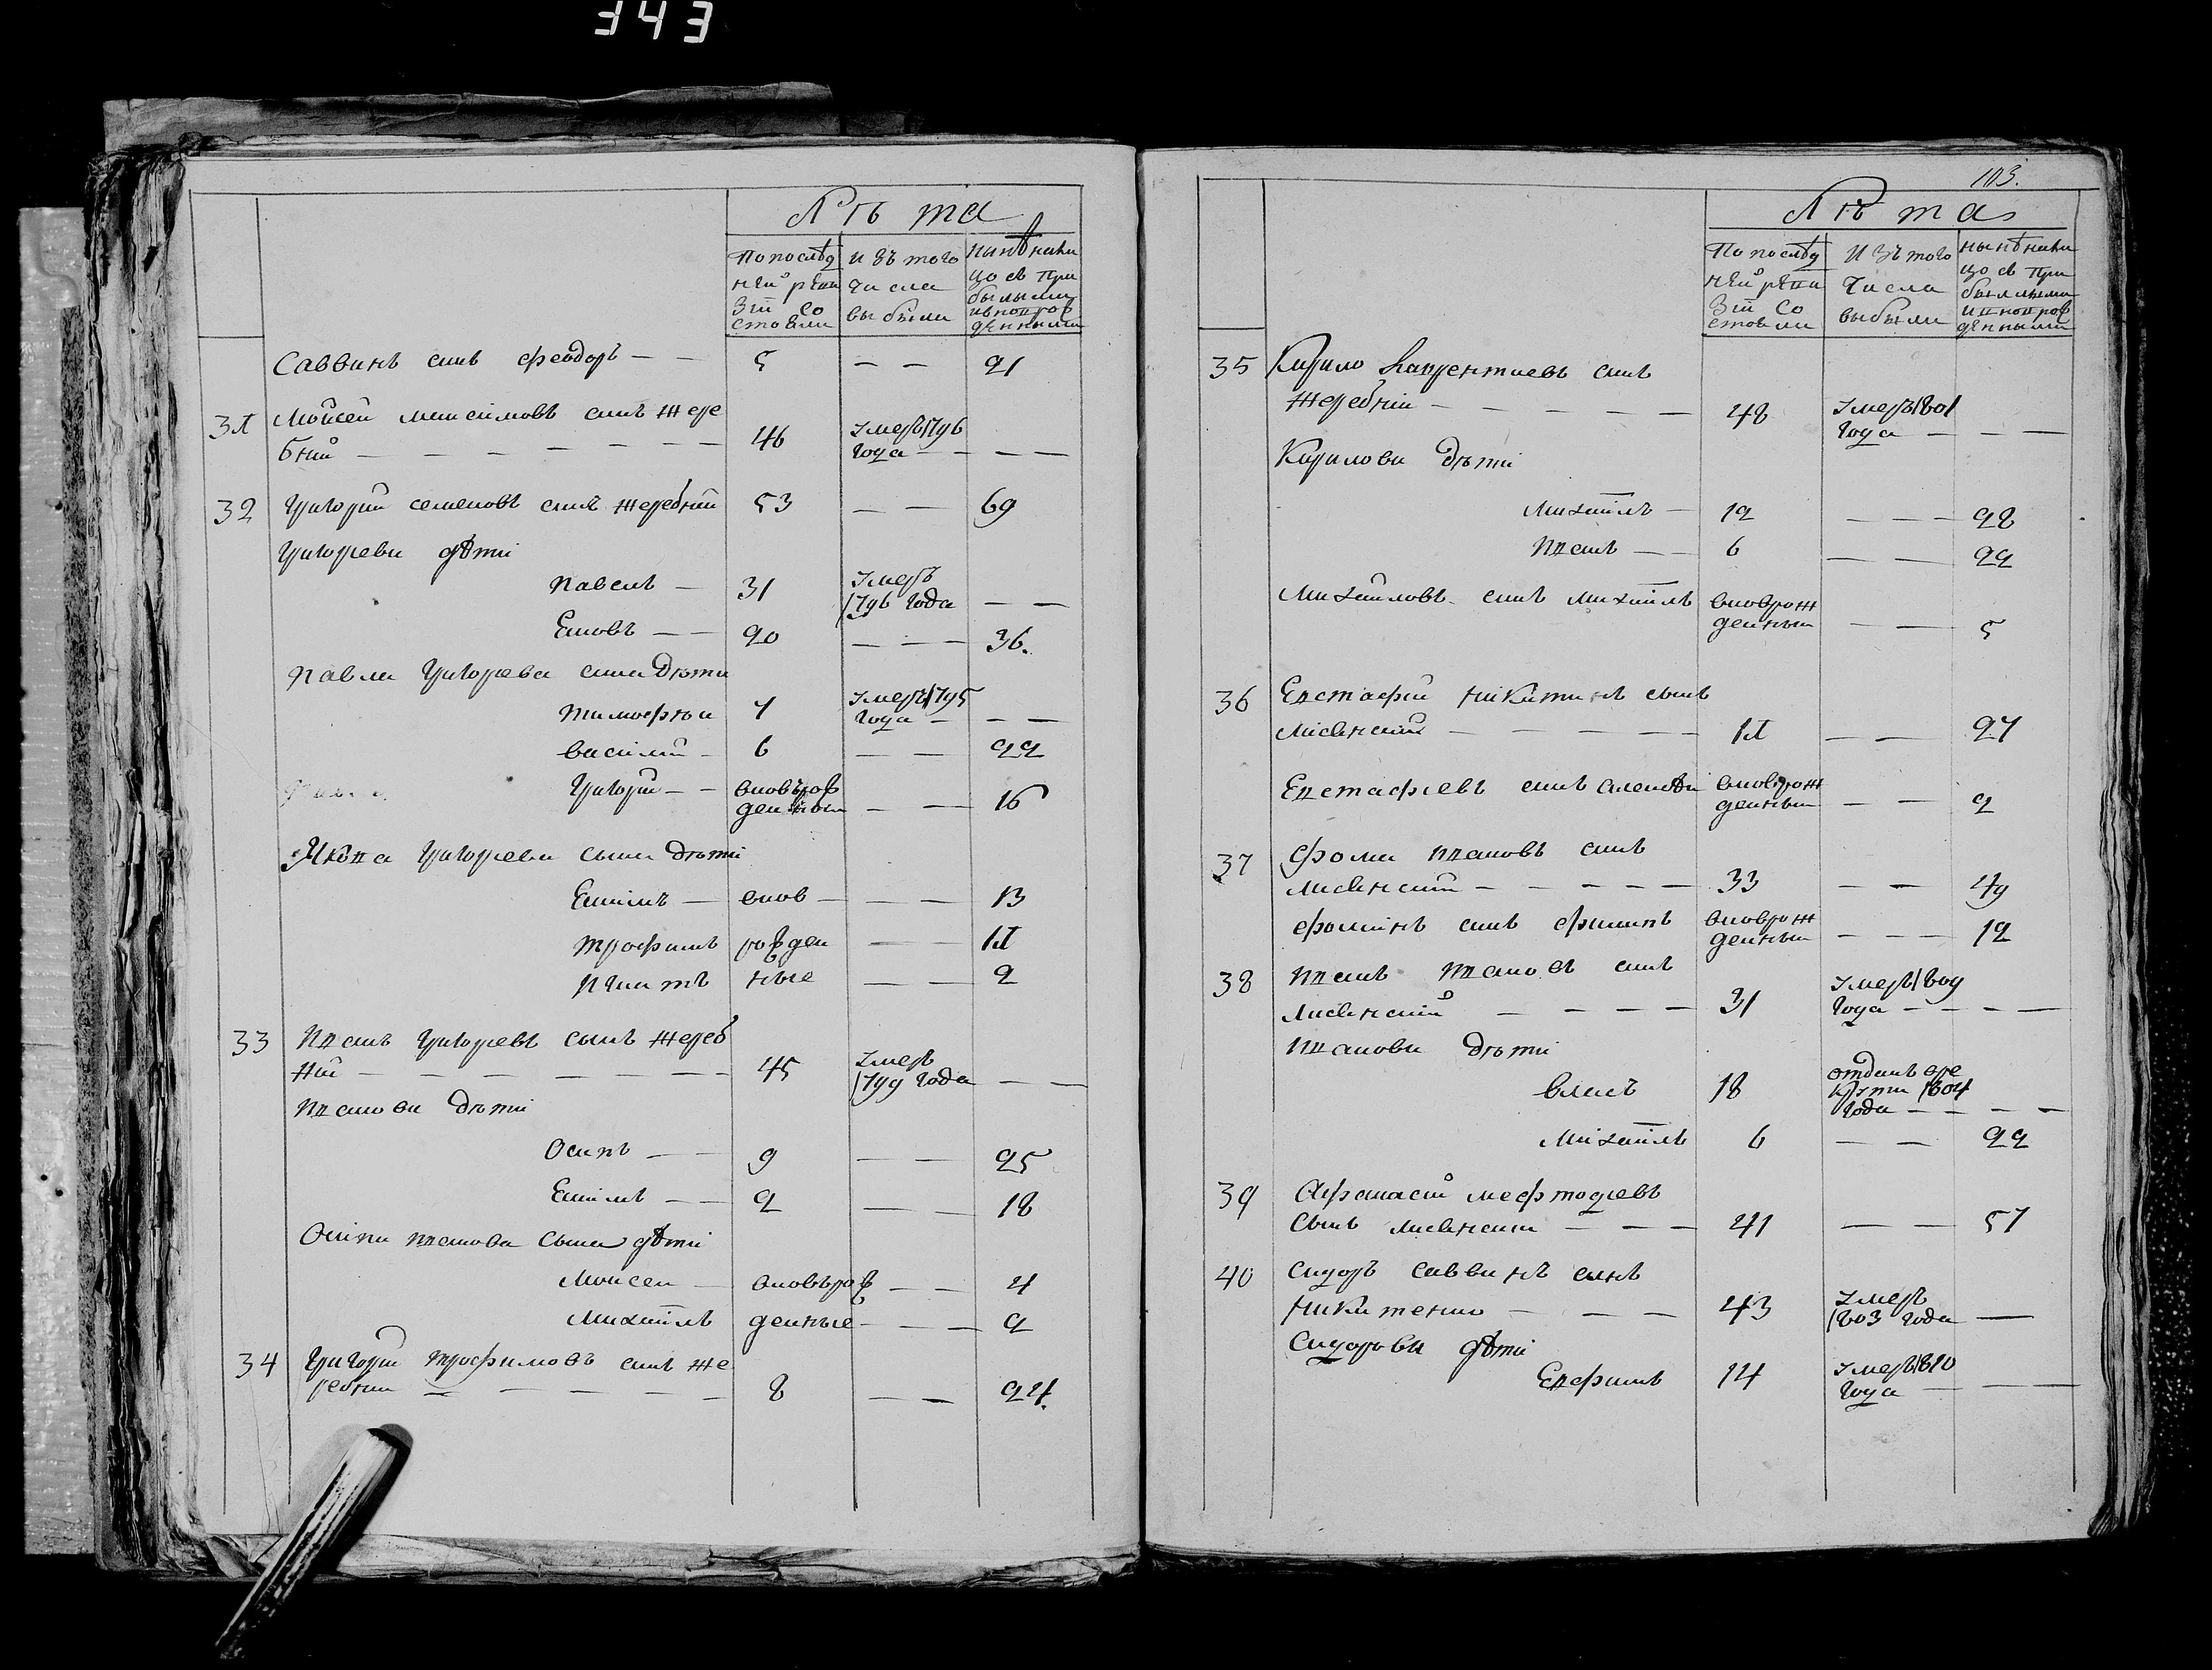 343
Лѣта
По послѣд
ней реви
зіи со
стояли
И зъ того
числа
выбыли
Нынѣ нали
цо съ при
былыми
и вновъ рож
денными
Саввинъ синъ Феодоръ — — 5 — — 21
31 Мойсей Максимовъ синъ Жере
бний — — — — — — 46 Умеръ 1796
года — — — —
32 Григорий Семеновъ синъ Жеребний 53 — — 69
Григореви дѣти
Павелъ — 31 Умеръ
1796 года — —
Яковъ — — 20 — — — 36.
Павла Григорева сина дѣти
Тимофѣй 7 Умеръ 1795
года — — —
Василий — 6 — — 22
Григорий — — вновъ рож
денный — — 16
Якова Григорева сына дѣти
Данилъ — внов — — — 13
Трофимъ рожден — — 11
Игнатъ ные — — 2
33 Иванъ Григоревъ сынъ Жереб
ний — — — — — — 45 Умеръ
1799 года — —
Иванови дѣти
Осипъ — — 9 — — 25
Данилъ — — 2 — — 18
Осипа Иванова сына дѣти
Моисей — вновъ рож — — 4
Михаилъ денные — — — 2
34 Григорий Трофимовъ синъ Же
ребний — — — — — 8 — — 24.
103.
Лѣта
По послѣд
ней реви
зіи со
стояли
И зъ того
числа
выбыли
Нынѣ нали
цо съ при
былыми
и вновъ рож
денными
35 Кирило Лаврентиевъ синъ
Жеребній — — — — — 48 Умеръ 1801
года — — —
Кирилови дѣти
Михаилъ — 12 — — — 28
Иванъ — — 6 — — 22
Михайловъ синъ Михаилъ вновъ рож
денный — — 5
36 Евстафий Никитинъ сынъ
Лисенский — — — — — 11 — — 27
Евстафиевъ синъ вновъ рож
денный — — 2
37 Фома Ивановъ синъ
Лисенский — — — — — 33 — — 49
Фоминъ синъ Филипъ вновъ рож
денный — — — 12
38 Иванъ Ивановъ синъ
Лисенский — — — — 31 Умеръ 1809
года — — — —
Иванови дѣти
Власъ 18 отданъ вре
крути 1804
года — — — —
Михаилъ 6 — — 22
39 Афанасий Мефтодиевъ
сынъ Лисенский — — — 41 — — 57
40 Сидоръ Саввинъ синъ
Никитенко — — — 43 Умеръ
1803 года —
Сидорови дѣти
Евфимъ 14 Умеръ 1810
года — —